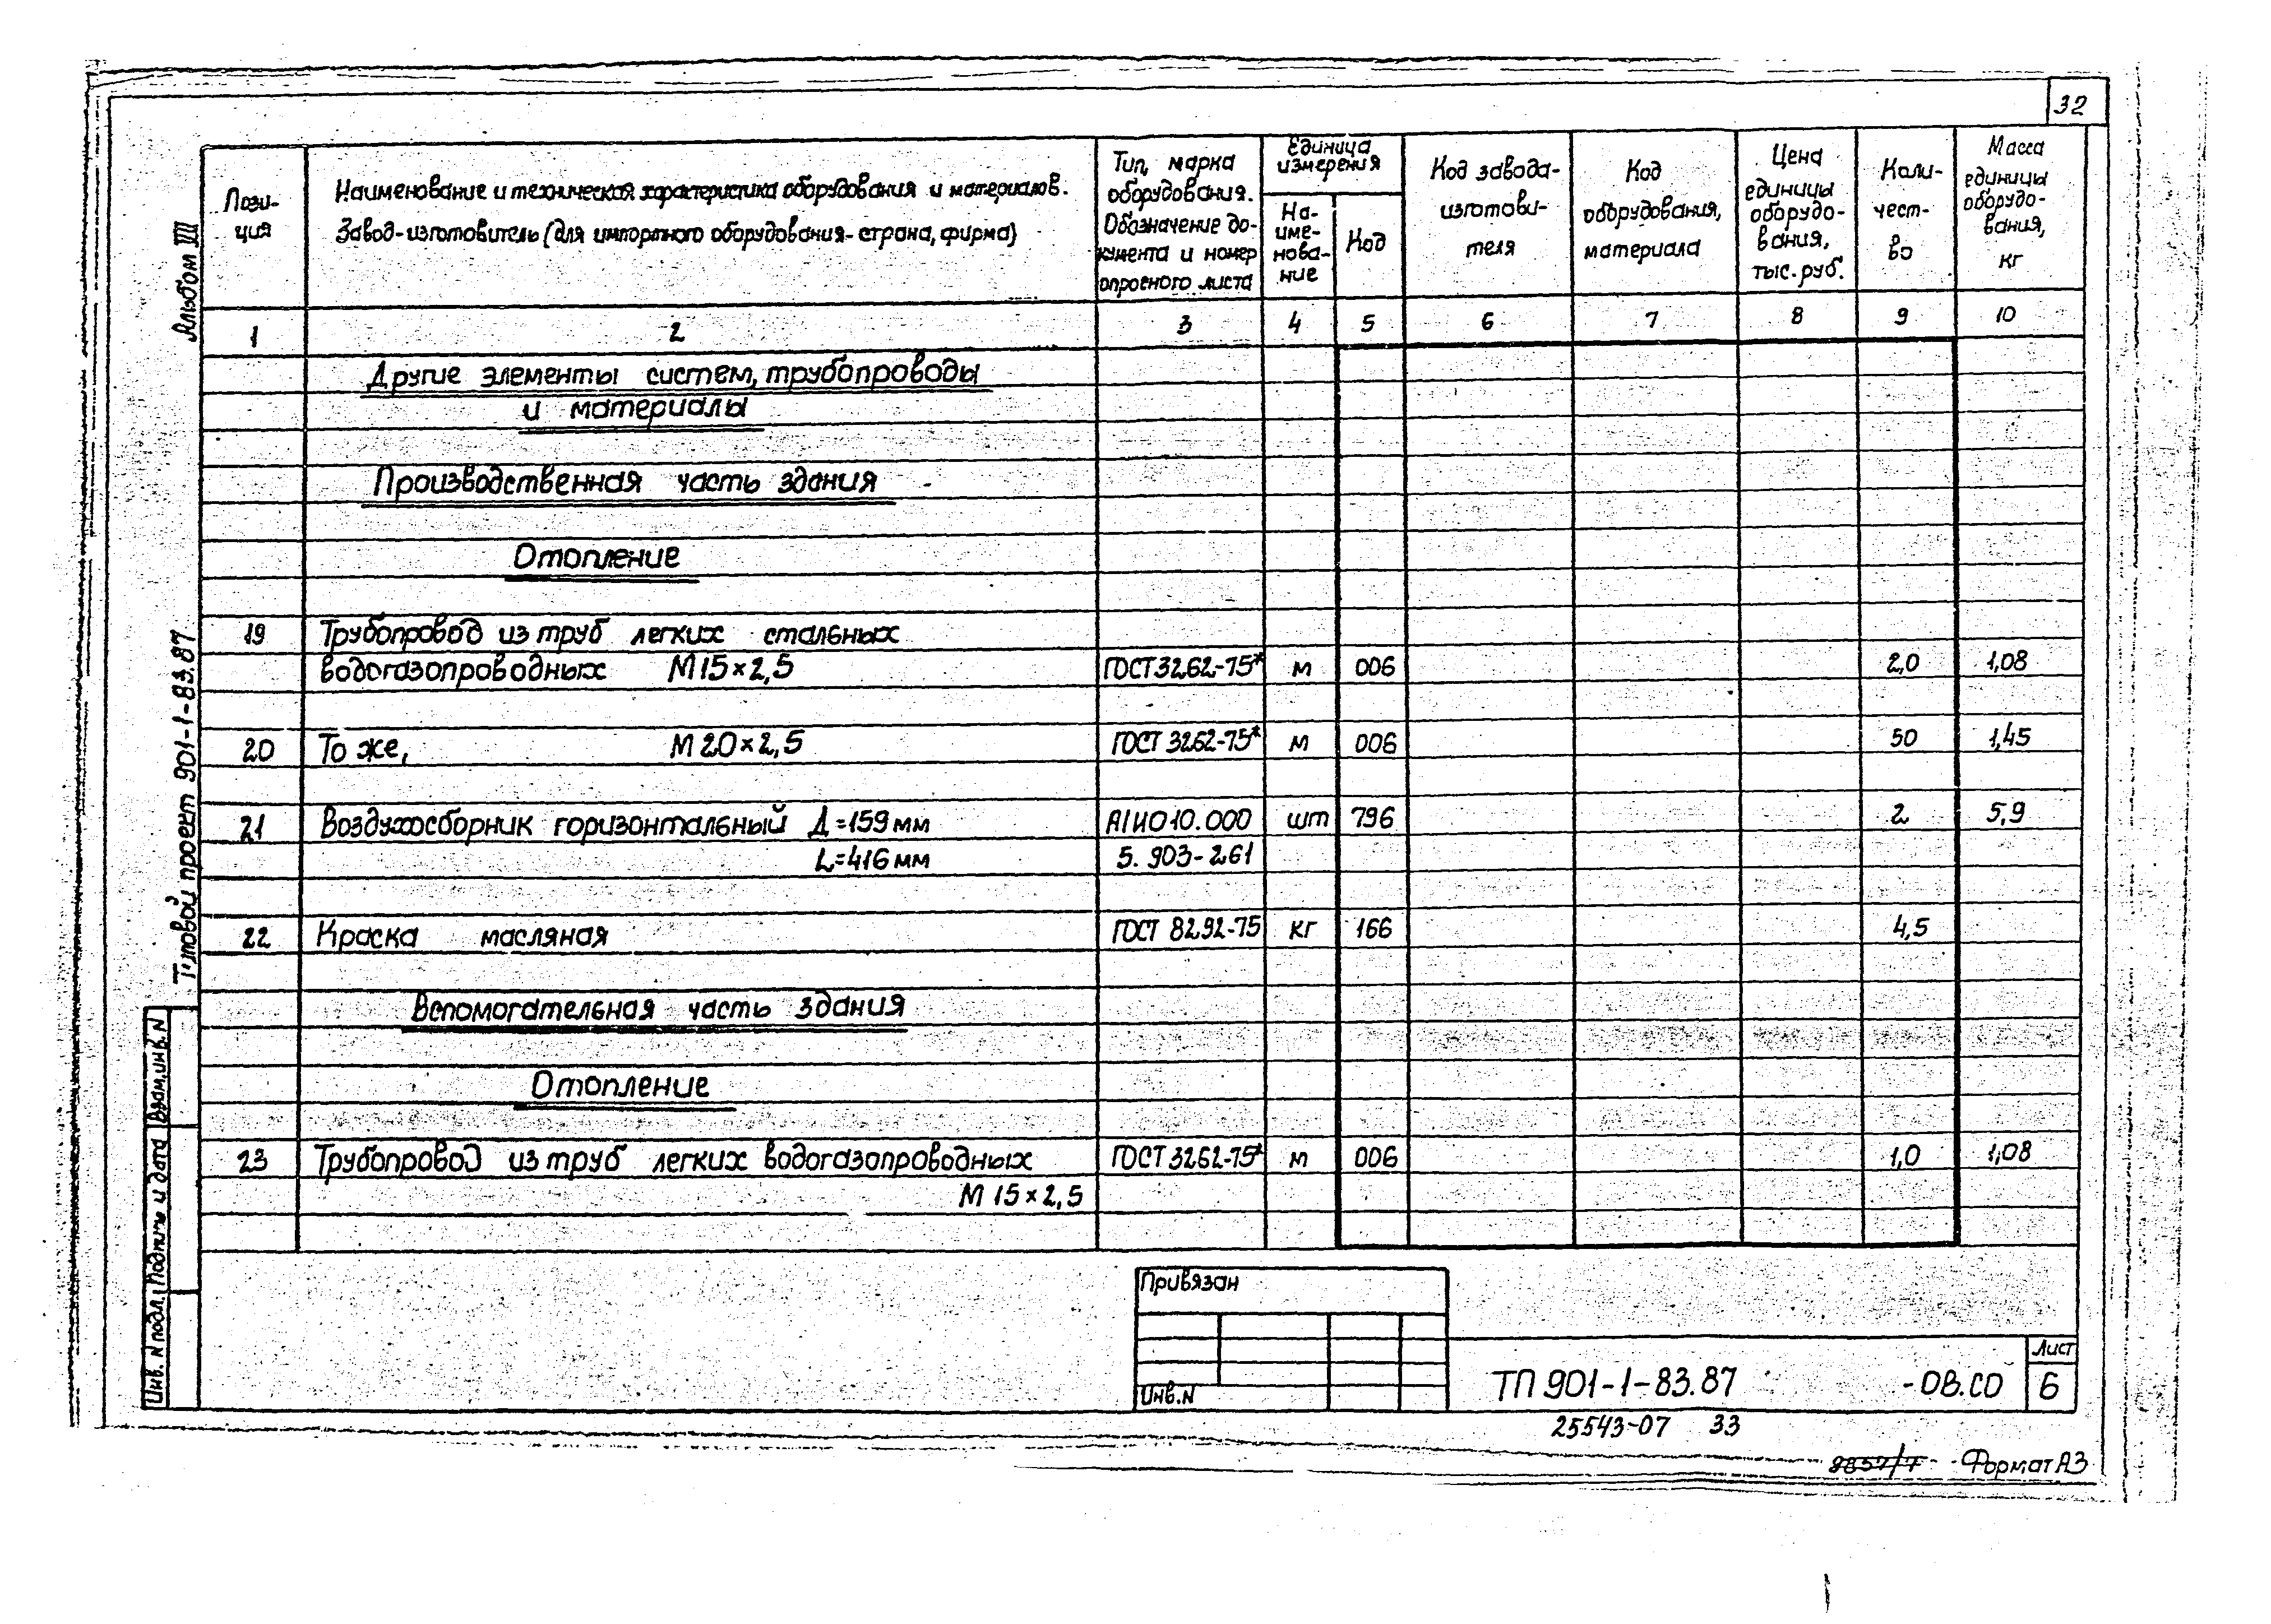 32
Альбом VIII
Типовой проект 901-1-83.87
Взам.инв.N
Подпись и дата
Инв. N подл.
Пози-
ция
Наименование и техническая характеристика оборудования и материалов.
Завод-изготовитель (для импортного оборудования-страна, фирма)
Тип, марка
оборудования.
Обозначение до-
кумента и номер
опросного листа
Единица
измерения
На-
име-
нова-
ние
Код
Код завода-
изготови-
теля
Код
оборудования,
материала
Цена
единицы
оборудо-
вания,
тыс.руб.
Коли-
чест-
во
Масса
единицы
оборудо-
вания,
кг
1 2 3 4 5 6 7 8 9 10
Другие элементы систем, трубопроводы
и материалы
Производственная часть здания
Отопление
19 Трубопровод из труб легких стальных
водогазопроводных М15×2,5 ГОСТ3262-75* м 006 2,0 1,08
20 То же, М20×2,5 ГОСТ 3262-75* м 006 50 1,45
21 Воздухосборник горизонтальный Д=159мм А1И010.000 шт 796 2 5,9
L=416мм 5. 903-261
22 Краска масляная ГОСТ 8292-75 кг 166 4,5
Вспомогательная часть здания
Отопление
23 Трубопровод из труб легких водогазопроводных ГОСТ3262-75* м 006 1,0 1,08
М 15×2,5
Привязан
Инв.N
ТП 901-1-83.87 -ОВ.СО
Лист
6
25543-07 33
Формат А3